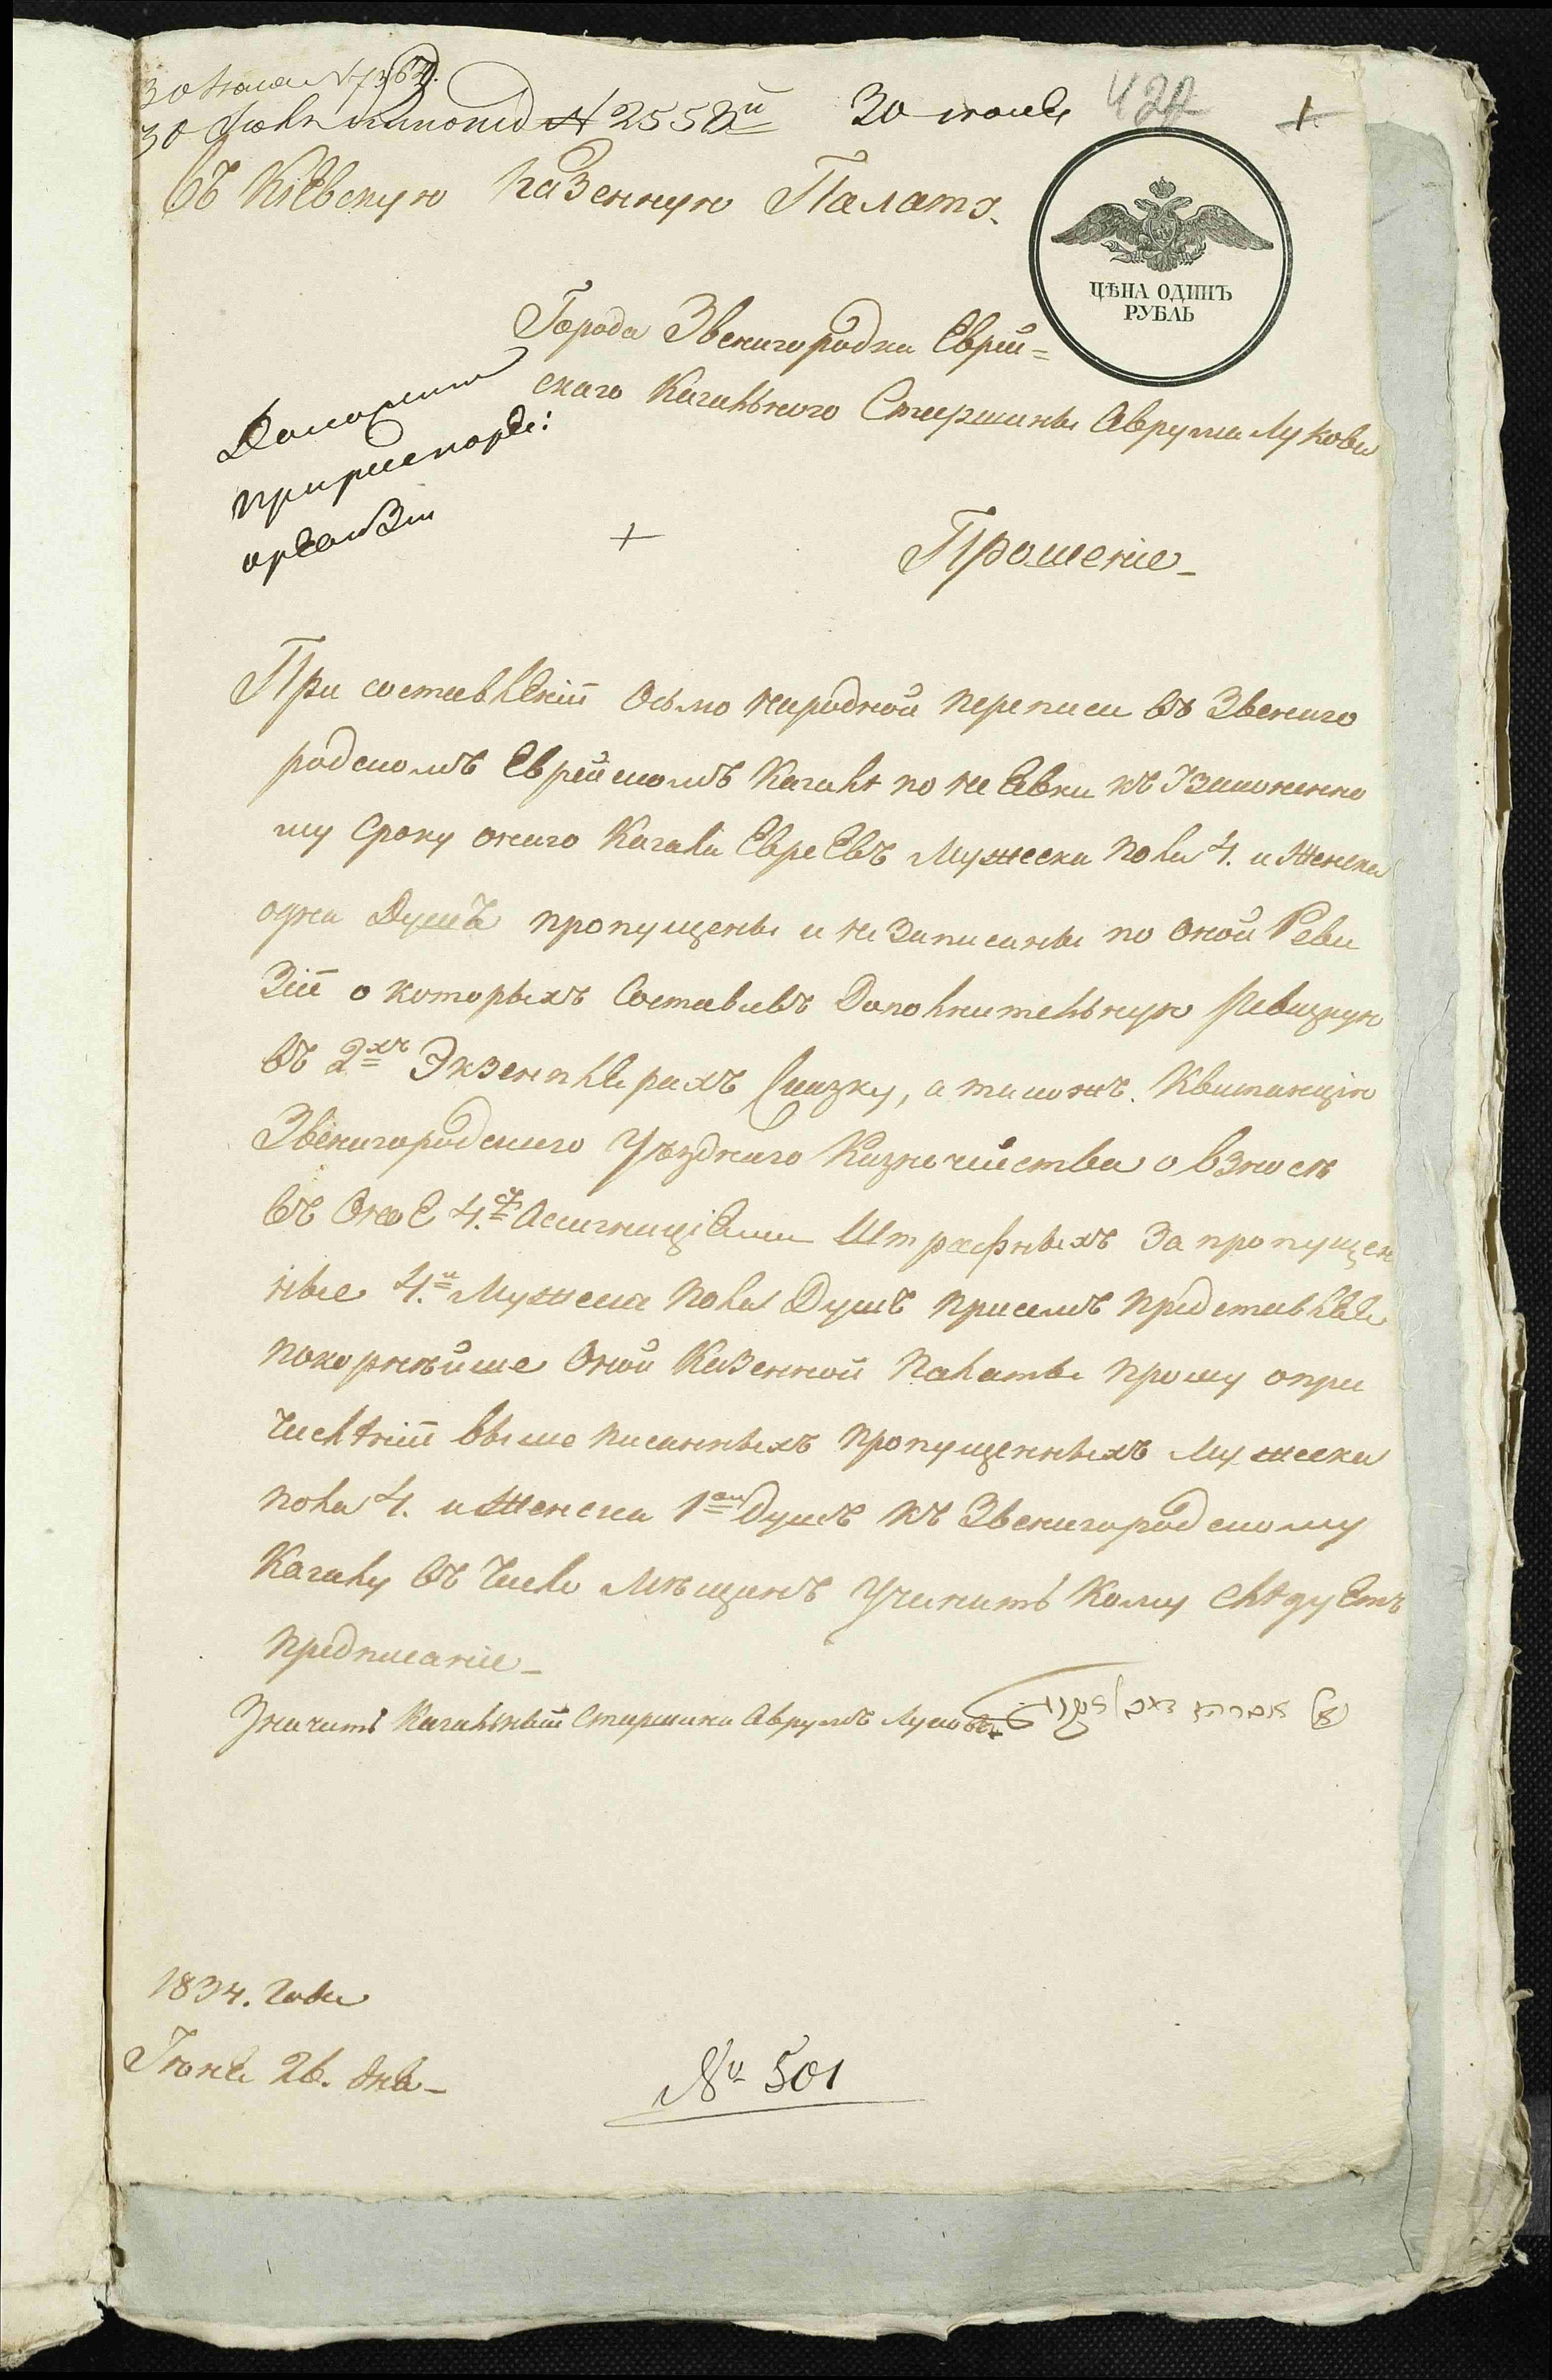 30 Июня № 7364.
30 Июня № 2558й 30 июня 427 1
Въ Кіевскую Казенную Палату
ЦѢНА ОДИНЪ
РУБЛЬ
Города Звенигородки Еврей=
скаго Кагальнаго Старшины Аврума Лукова
Доложить
при реестре
Прошеніе
При составленіи осьмо народной переписи въ Звениго
родскомъ Еврейскомъ Кагалѣ по не явки къ Узаконенно
му сроку онаго Кагала Евреевъ Мужеска пола 4. и Женска
одна Душъ пропущены и не записаны по оной Реви
зіи о которыхъ Составивъ Дополнительную Ревизкую
въ 2хъ Экземплярахъ Сказку, а также Квитанцію
Звенигородскаго Уѣзднаго Казначейства о взносѣ
въ оное 4. Асигнаціями Штрафныхъ за пропущен
ные 4. Мужеска пола Душъ присемъ представляя
покорнѣйше Оной Казенной Палаты прошу опри
численіи выше писанныхъ пропущенныхъ мужеска
пола 4. и Женска 1ой Душъ къ Звенигородскому
Кагалу въ число Мѣщанъ Учинить кому слѣдуетъ
предписаніе
Значитъ Кагальный Старшина Аврумъ Луковъ
1834. Года
Іюня 26. дня
№ 501